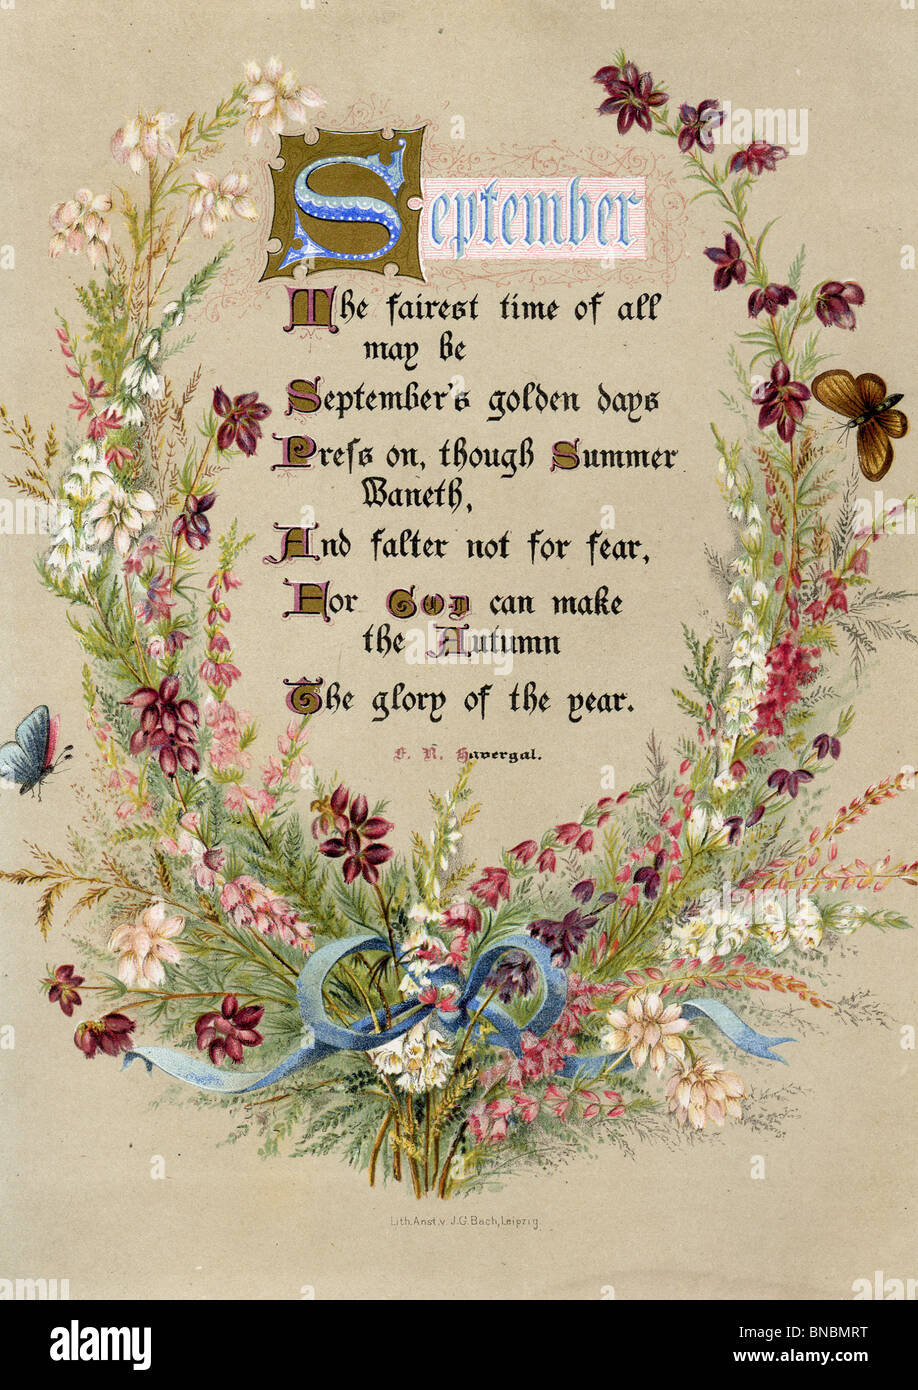 September
The fairest time of all
may be
September's golden days
Preſs on, though Summer
Waneth,
And falter not for fear,
For GOD can make
the Autumn
The glory of the year.
F. R. Havergal.
Lith. Anst. v. J. G. Bach, Leipzig.
alamy
Image ID: BNBMRT
www.alamy.com